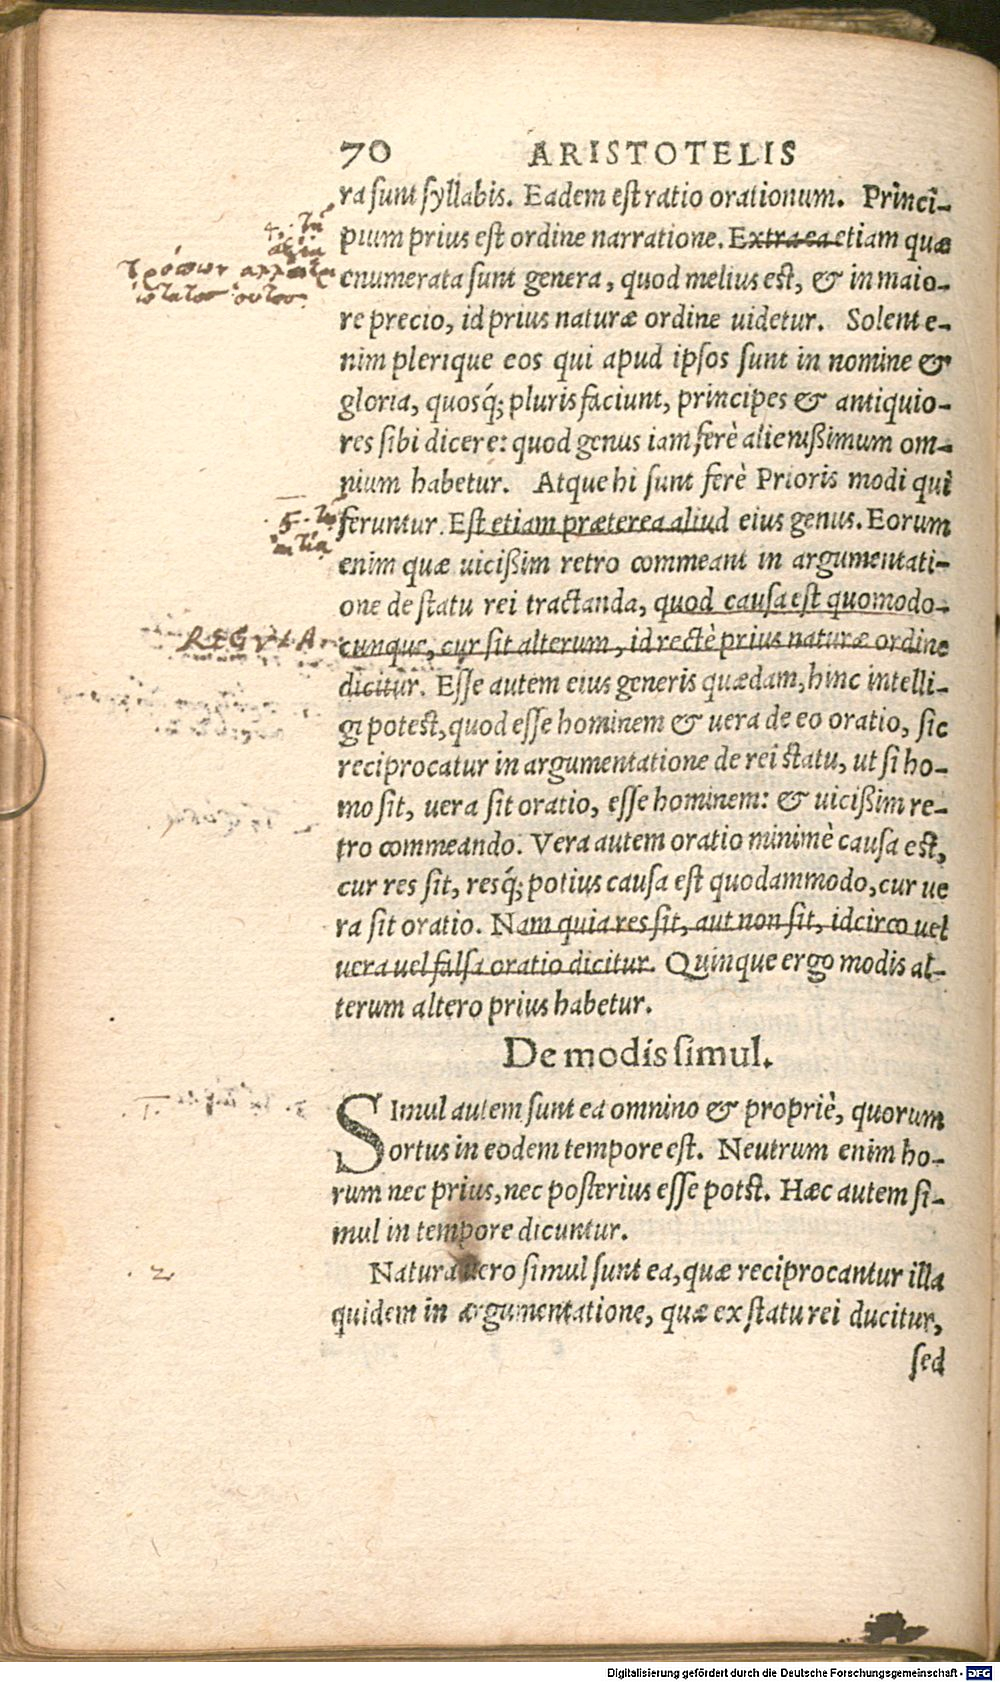 70 ARISTOTELIS
ra sunt syllabis. Eadem est ratio orationum. Princi-
pium prius est ordine narratione. Extra ea etiam quæ
enumerata sunt genera, quod melius est, & in maio-
re precio, id prius naturæ ordine uidetur. Solent e-
nim plerique eos qui apud ipsos sunt in nomine &
gloria, quosq́; pluris faciunt, principes & antiquio-
res sibi dicere: quod genus iam ferè alienißimum om-
nium habetur. Atque hi sunt ferè Prioris modi qui
feruntur. Est etiam præterea aliud eius genus. Eorum
enim quæ uicißim retro commeant in argumentati-
one de statu rei tractanda, quod causa est quomodo-
REGVLA
cunque, cur sit alterum, id rectè prius naturæ ordine
dicitur. Esse autem eius generis quædam, hinc intelli-
gi potest, quod esse hominem & uera de eo oratio, sic
reciprocatur in argumentatione de rei statu, ut si ho-
mo sit, uera sit oratio, esse hominem: & uicißim re-
tro commeando. Vera autem oratio minimè causa est,
cur res sit, resq́; potius causa est quodammodo, cur ue
ra sit oratio. Nam quia res sit, aut non sit, idcirco uel
uera uel falsa oratio dicitur. Quinque ergo modis al-
terum altero prius habetur.
De modis simul.
.1.
Simul autem sunt ea omnino & propriè, quorum
ortus in eodem tempore est. Neutrum enim ho-
rum nec prius, nec posterius esse potst. Hæc autem si-
mul in tempore dicuntur.
.2
Natura uero simul sunt ea, quæ reciprocantur illa
quidem in argumentatione, quæ ex statu rei ducitur,
sed
Digitalisierung gefördert durch die Deutsche Forschungsgemeinschaft - DFG